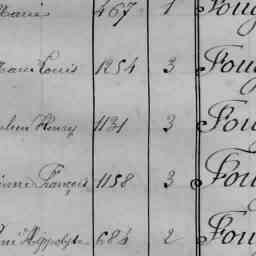 Marie 467 1 Foug
Louis 1254 3 Foug
Henry 1131 3 Foug
François 1158 3 Foug
Hippolyte 684 2 Foug